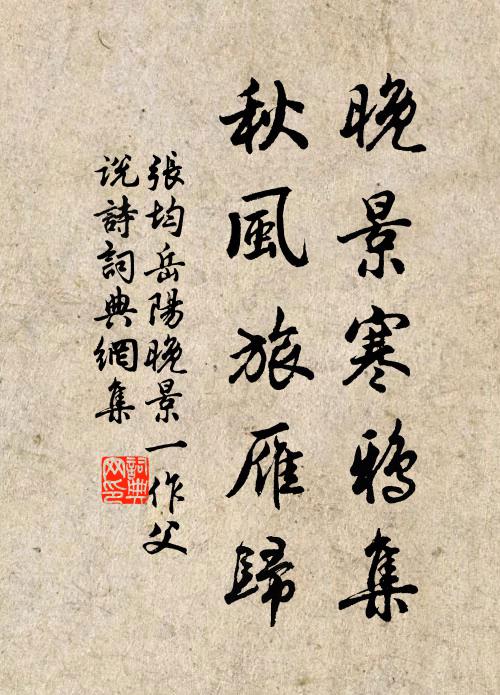 晚景寒鴉集
秋風旅雁歸
張均岳陽晚景一作父
说詩詞典網集
詞典
网印